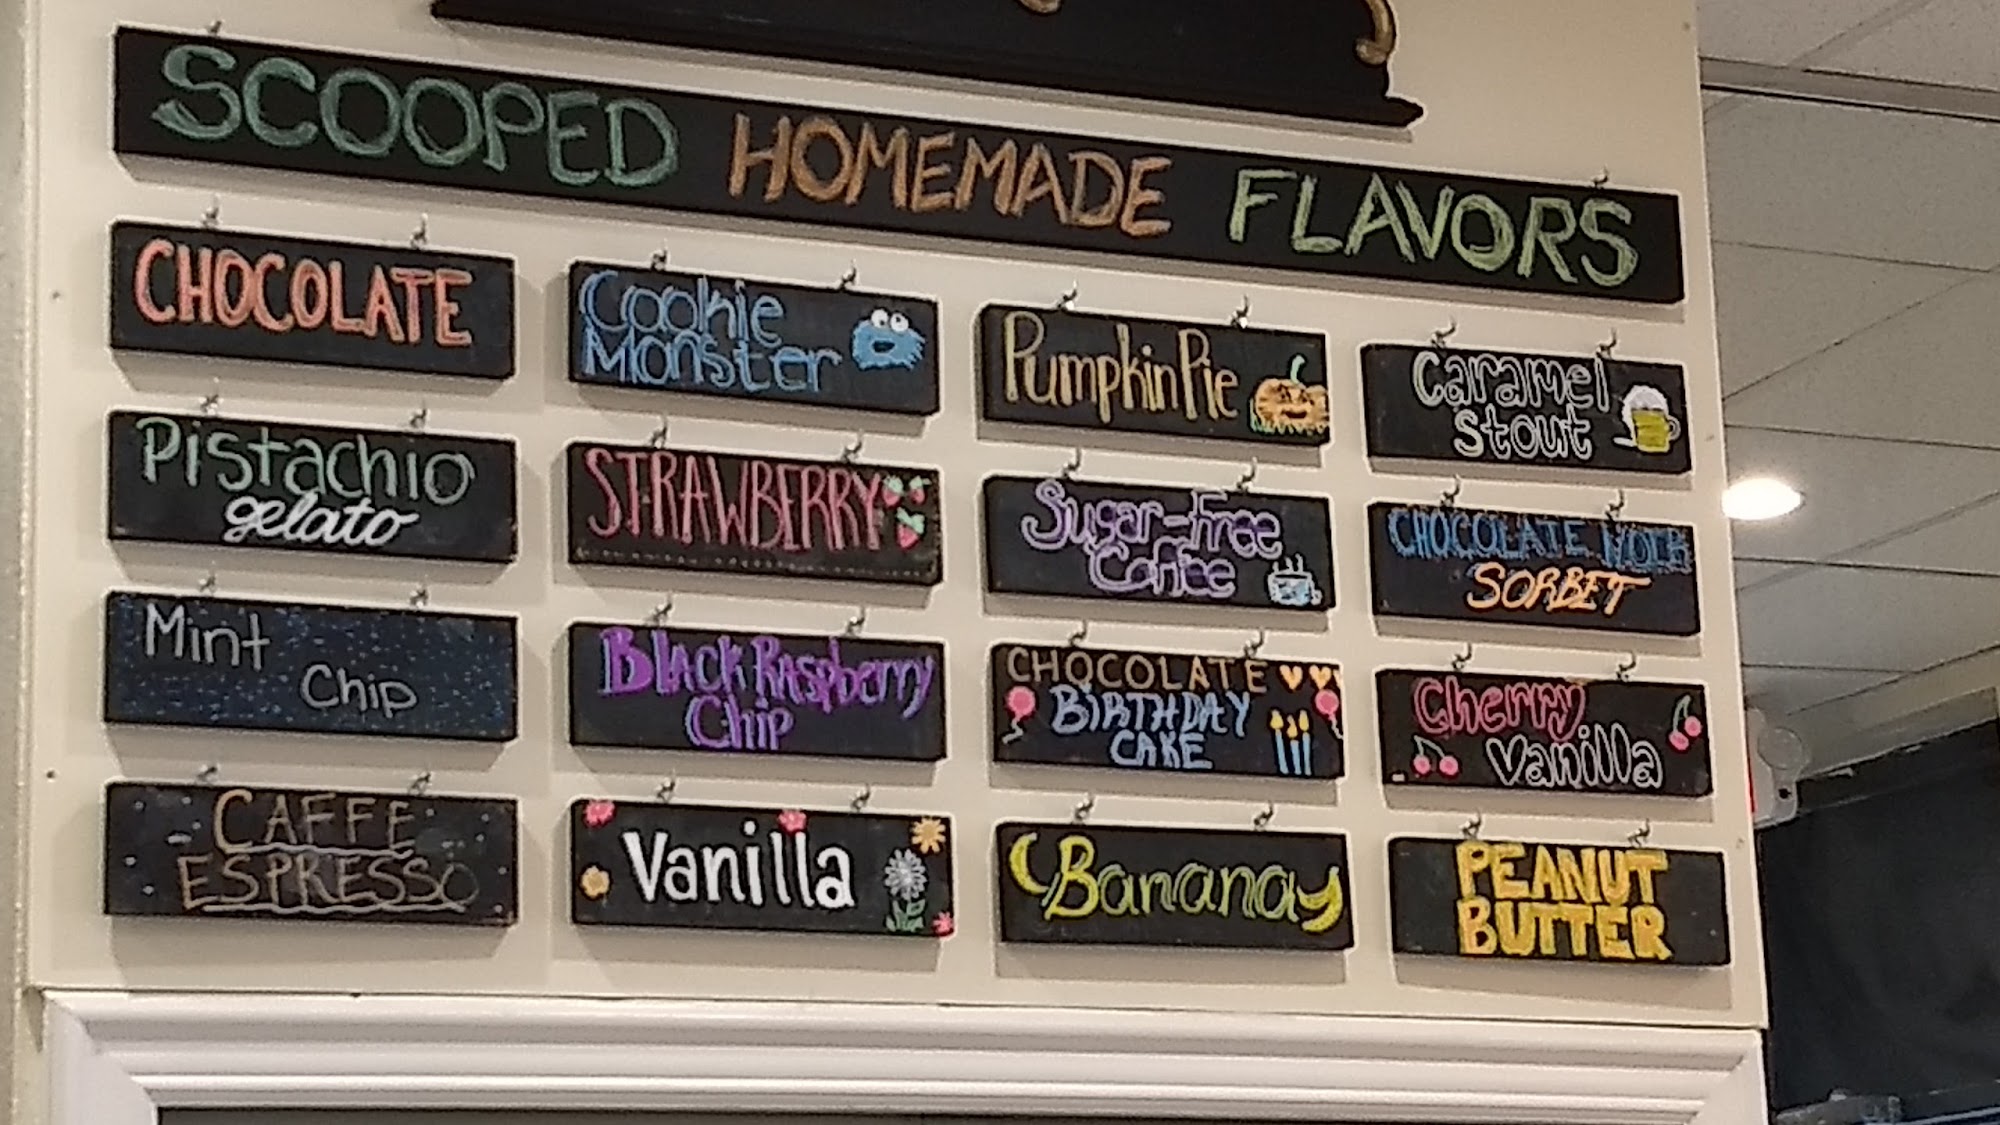 SCOOPED HOMEMADE FLAVORS
CHOCOLATE
Cookie
Monster
Pumpkin Pie
Caramel
Stout
Pistachio
gelato
STRAWBERRY
Sugar-Free
Coffee
CHOCOLATE NOIR
SORBET
Mint
Chip
Black Raspberry
Chip
CHOCOLATE
BIRTHDAY
CAKE
Cherry
Vanilla
CAFFE
ESPRESSO
Vanilla
Banana
PEANUT
BUTTER